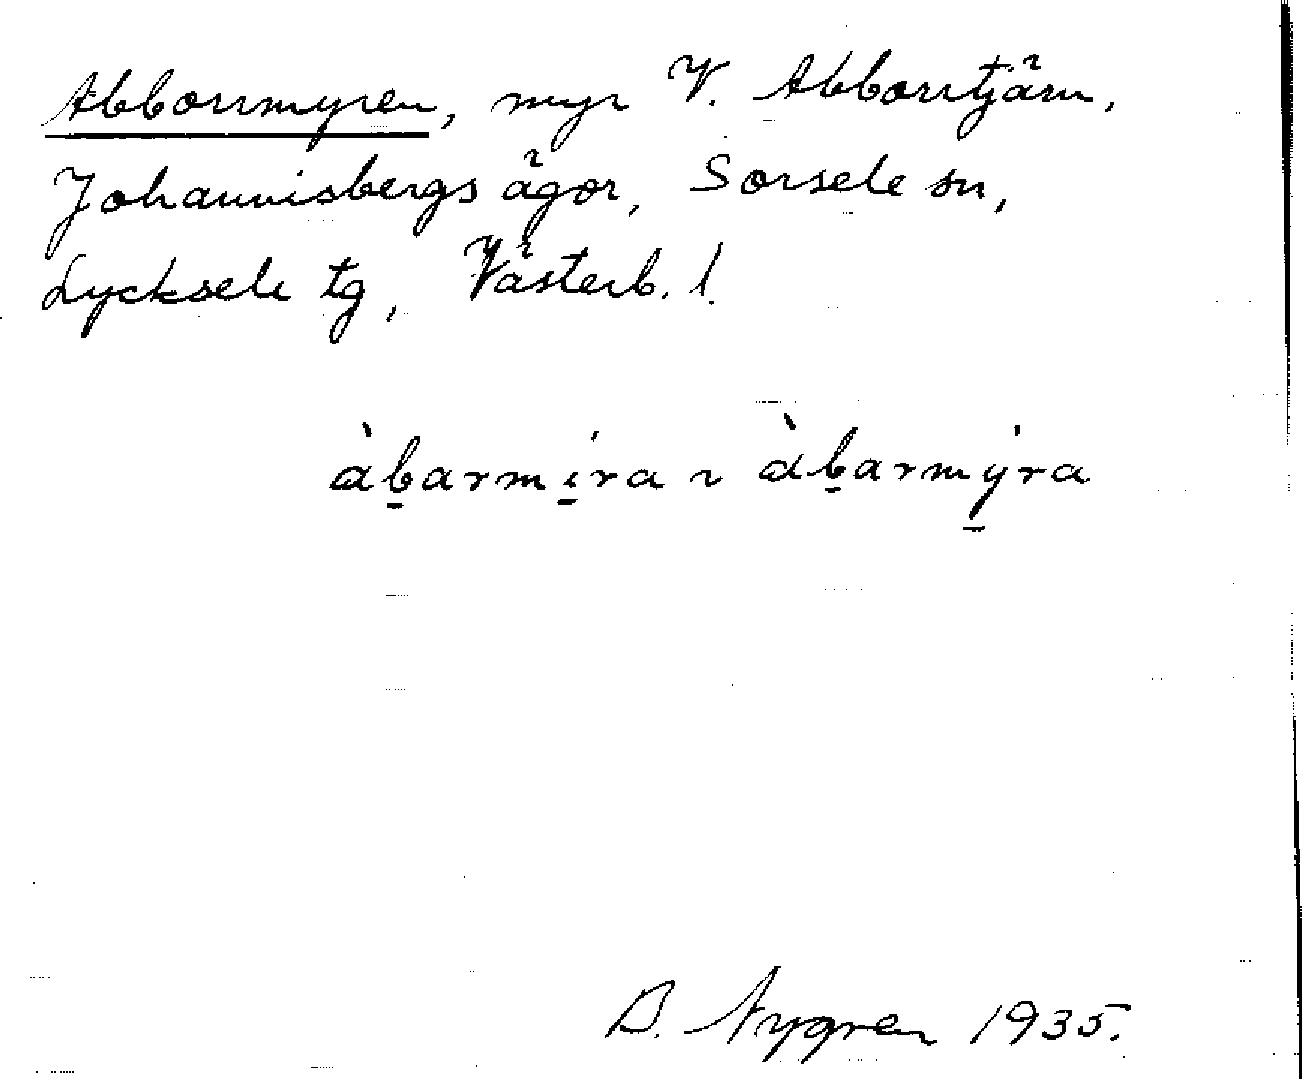 Abborrmyren, myr V. Abborrtjärn,
Johannisbergs ägor, Sorsele sn,
Lycksele tg, Västerb. l.
àb̲armí̲ra ~ àb̲armý̲ra
B. Nygren 1935.